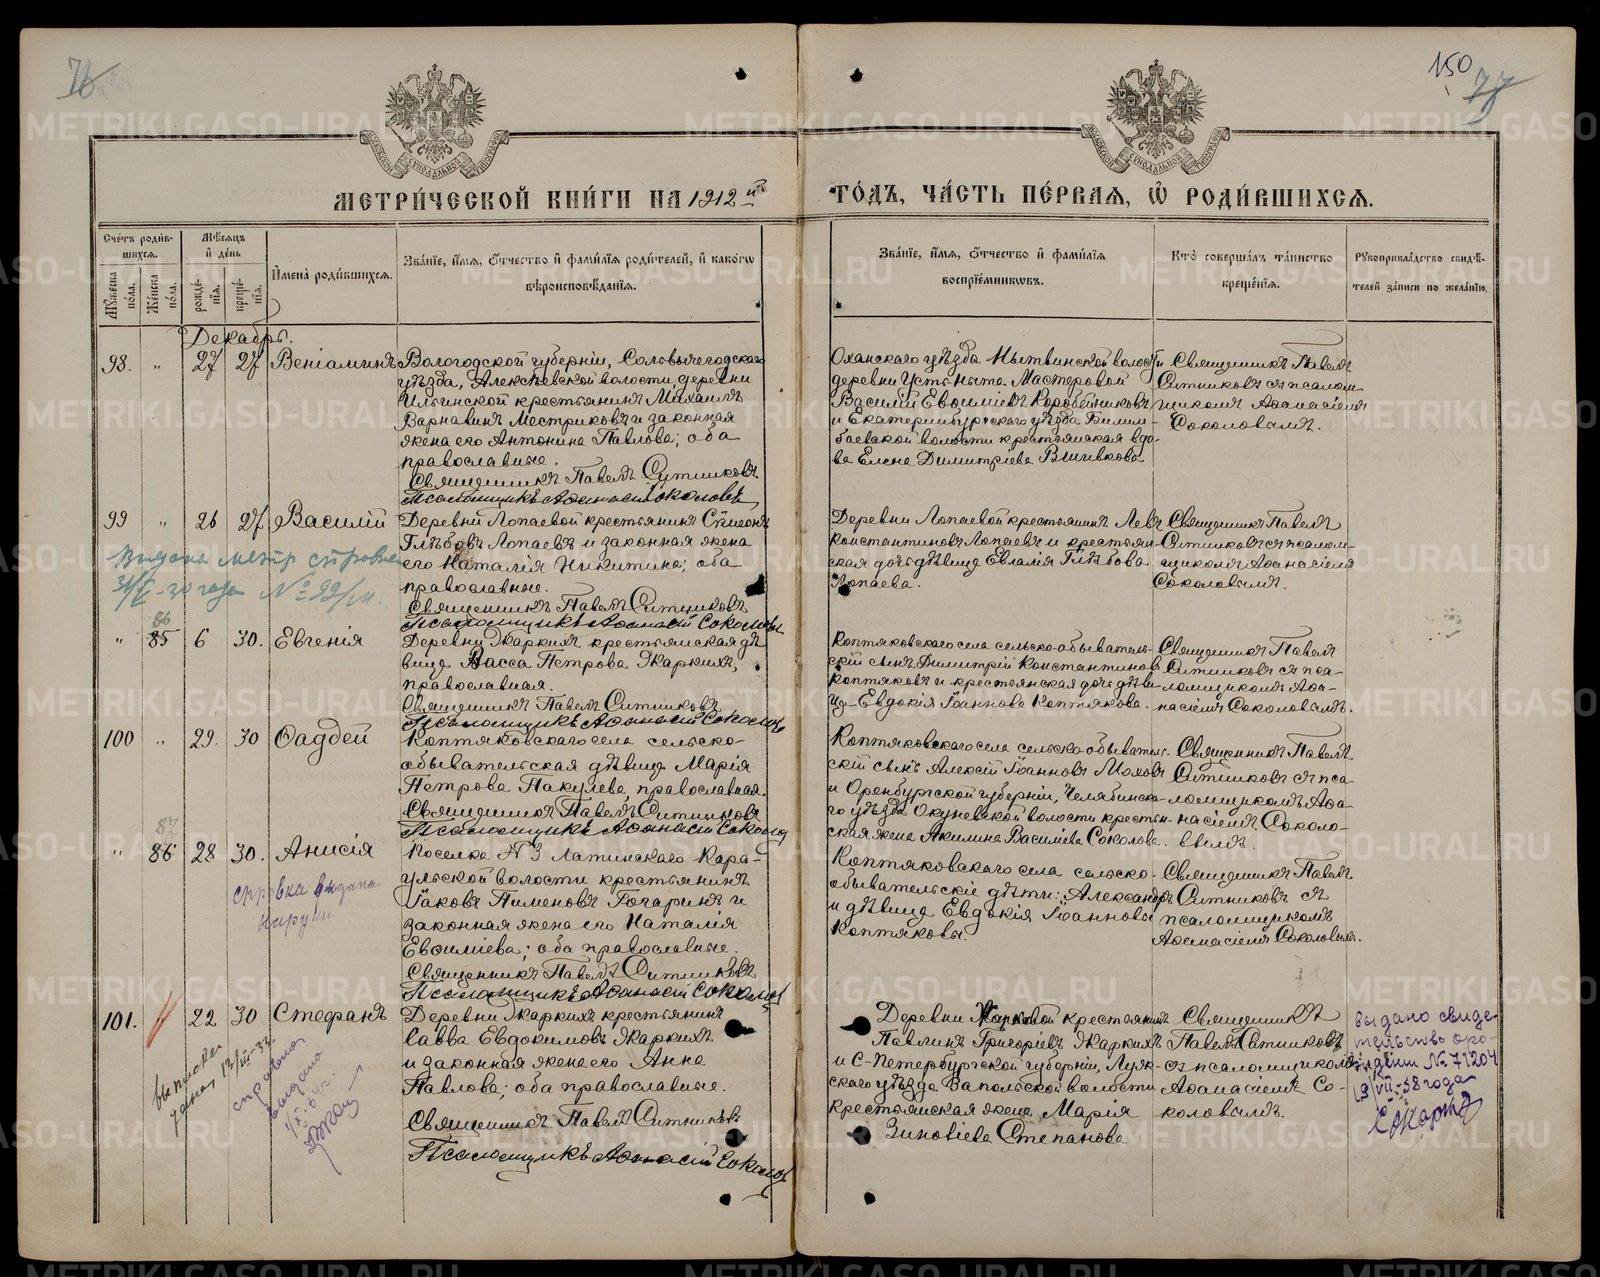 76
150
77
МЕТРИ́ЧЕСКОЙ КНИ́ГИ НА 1912 й
ГО́ДЪ, ЧА́СТЬ ПЕ́РВАѦ, Ѽ РОДИ́ВШИХСѦ.
Сче́тъ роди́в-
шихсѧ.
Мѣ́сѧцъ
и҆ де́нь
Мꙋ́жеска
по́ла.
Же́нска
по́ла.
рожде́-
нїѧ.
креще́-
нїѧ.
И҆мена̀ роди́вшихсѧ.
Зва́нїе, и҆́мѧ, ѻ҆́тчество и҆ фами́лїѧ роди́телей, и҆ како́гѡ
вѣроисповѣ́данїѧ.
Зва́нїе, и҆́мѧ, ѻ҆́тчество и҆ фами́лїѧ
воспрїе́мникѡвъ.
Кто̀ соверша́лъ та́инство
креще́нїѧ.
Рꙋкоприкла́дство свидѣ́-
телей за́писи по жела́нїю.
Декабрь.
98. " 27 27 Веніаминъ
Вологодской губерніи, Сольвычегодскаго
уѣзда, Алексѣевской волости, деревни
Ильинской крестьянинъ Михаилъ
Варнавинъ Местриковъ и законная
жена его Антонина Павлова; оба
православные.
Священникъ Павелъ Ситниковъ
Псаломщикъ Аѳанасій Соколовъ
Оханскаго уѣзда Нытвинской волости
деревни Усть-Нытва Мастеровой
Василій Евѳиміевъ Коробейниковъ
и Екатеринбургскаго уѣзда Билим-
баевской волости крестьянская вдо-
ва Елена Димитріева
Священникъ Павелъ
Ситниковъ съ псалом-
щикомъ Аѳанасіемъ
Соколовымъ.
99 " 26 27 Василій
Деревни Лопаевой крестьянинъ Сѵмеонъ
Глѣбовъ Лопаевъ и законная жена
его Наталія Никитина; оба
православные.
Священникъ Павелъ Ситниковъ
Псаломщикъ Аѳанасій Соколовъ
Деревни Лопаевой крестьянинъ Левъ
Константиновъ Лопаевъ и крестьян-
ская дочь дѣвица Евлалія Глѣбова
Лопаева.
Священникъ Павелъ
Ситниковъ съ псалом-
щикомъ Аѳанасіемъ
Соколовымъ.
Выдана метр справка
№ 99
86
" 85 6 30. Евгенія
Деревни Жаркихъ крестьянская дѣ-
вица Васса Петрова Жаркихъ,
православная.
Священникъ Павелъ Ситниковъ
Псаломщикъ Аѳанасій Соколовъ
Коптяковскаго села сельско-обыватель-
скій сынъ Димитрій Константиновъ
Коптяковъ и крестьянская дочь дѣви-
ца Евдокія Іоаннова Коптякова.
Священникъ Павелъ
Ситниковъ съ пса-
ломщикомъ Аѳа-
насіемъ Соколовымъ.
100 " 29. 30 Ѳаддей
Коптяковскаго села сельско-
обывательская дѣвица Марія
Петрова Пакулева, православная.
Священникъ Павелъ Ситниковъ
Псаломщикъ Аѳанасій Соколовъ
Коптяковскаго села сельско-обыватель-
скій сынъ Алексій Іоанновъ Моховъ
и Оренбургской губерніи, Челябинска-
го уѣзда Окуневской волости крестьян-
ская жена Акилина Васильева Соколова.
Священникъ Павелъ
Ситниковъ съ пса-
ломщикомъ Аѳа-
насіемъ Соколо-
вымъ.
87
" 86 28 30. Анисія
Поселка № 3 Латинскаго Кара-
ульской волости крестьянинъ
Іаковъ Пименовъ Гогаринъ и
законная жена его Наталія
Евѳиміева; оба православные.
Священникъ Павелъ Ситниковъ
Псаломщикъ Аѳанасій Соколовъ
Коптяковскаго села сельско-
обывательскіе дѣти: Александръ
и дѣвица Евдокія Іоанновы
Коптяковы.
Священникъ Павелъ
Ситниковъ съ
псаломщикомъ
Аѳанасіемъ Соколовымъ.
справка выдана
101. " 22 30 Стефанъ
Деревни Жаркихъ крестьянинъ
Савва Евдокимовъ Жаркихъ
и законная жена его Анна
Павлова; оба православные.
Священникъ Павелъ Ситниковъ
Псаломщикъ Аѳанасій Соколовъ
Деревни Жарковой крестьянинъ
Павлинъ Григоріевъ Жаркихъ
и С-Петербургской губерніи, Луж-
скаго уѣзда Запольской волости
крестьянская жена Марія
Зиновіева Степанова
Священникъ
Павелъ Ситниковъ
съ псаломщикомъ
Аѳанасіемъ Со-
коловымъ.
Выдано свиде-
тельство о ро-
ждении № 71204
19/VII-58 года
справка
выдана
METRIKI.GASO-URAL.RU